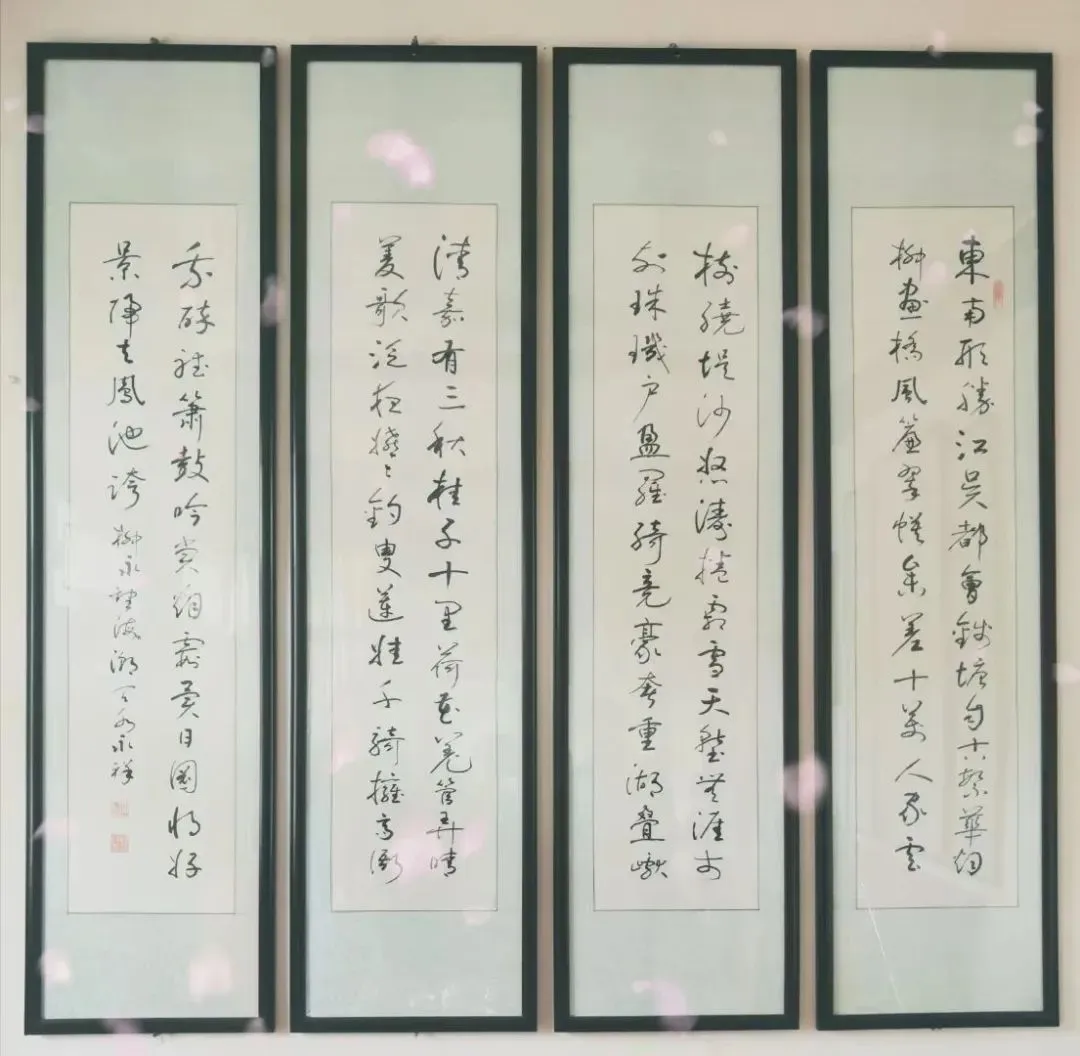 東南形勝江吳都會錢塘自古繁華烟
柳畫橋風簾翠幙參差十萬人家雲
樹繞堤沙怒濤捲霜雪天塹無涯市
列珠璣戶盈羅綺競豪奢重湖叠巘
清嘉有三秋桂子十里荷花羌管弄晴
菱歌泛夜嬉々釣叟蓮娃千騎擁高衙
乘醉聽簫鼓吟賞烟霞異日圖將好
景歸去鳳池誇 柳永望海潮 永祥